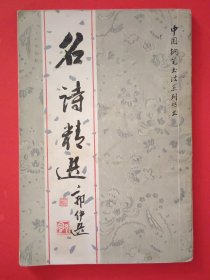 中国钢笔书法系列丛书
名诗精选